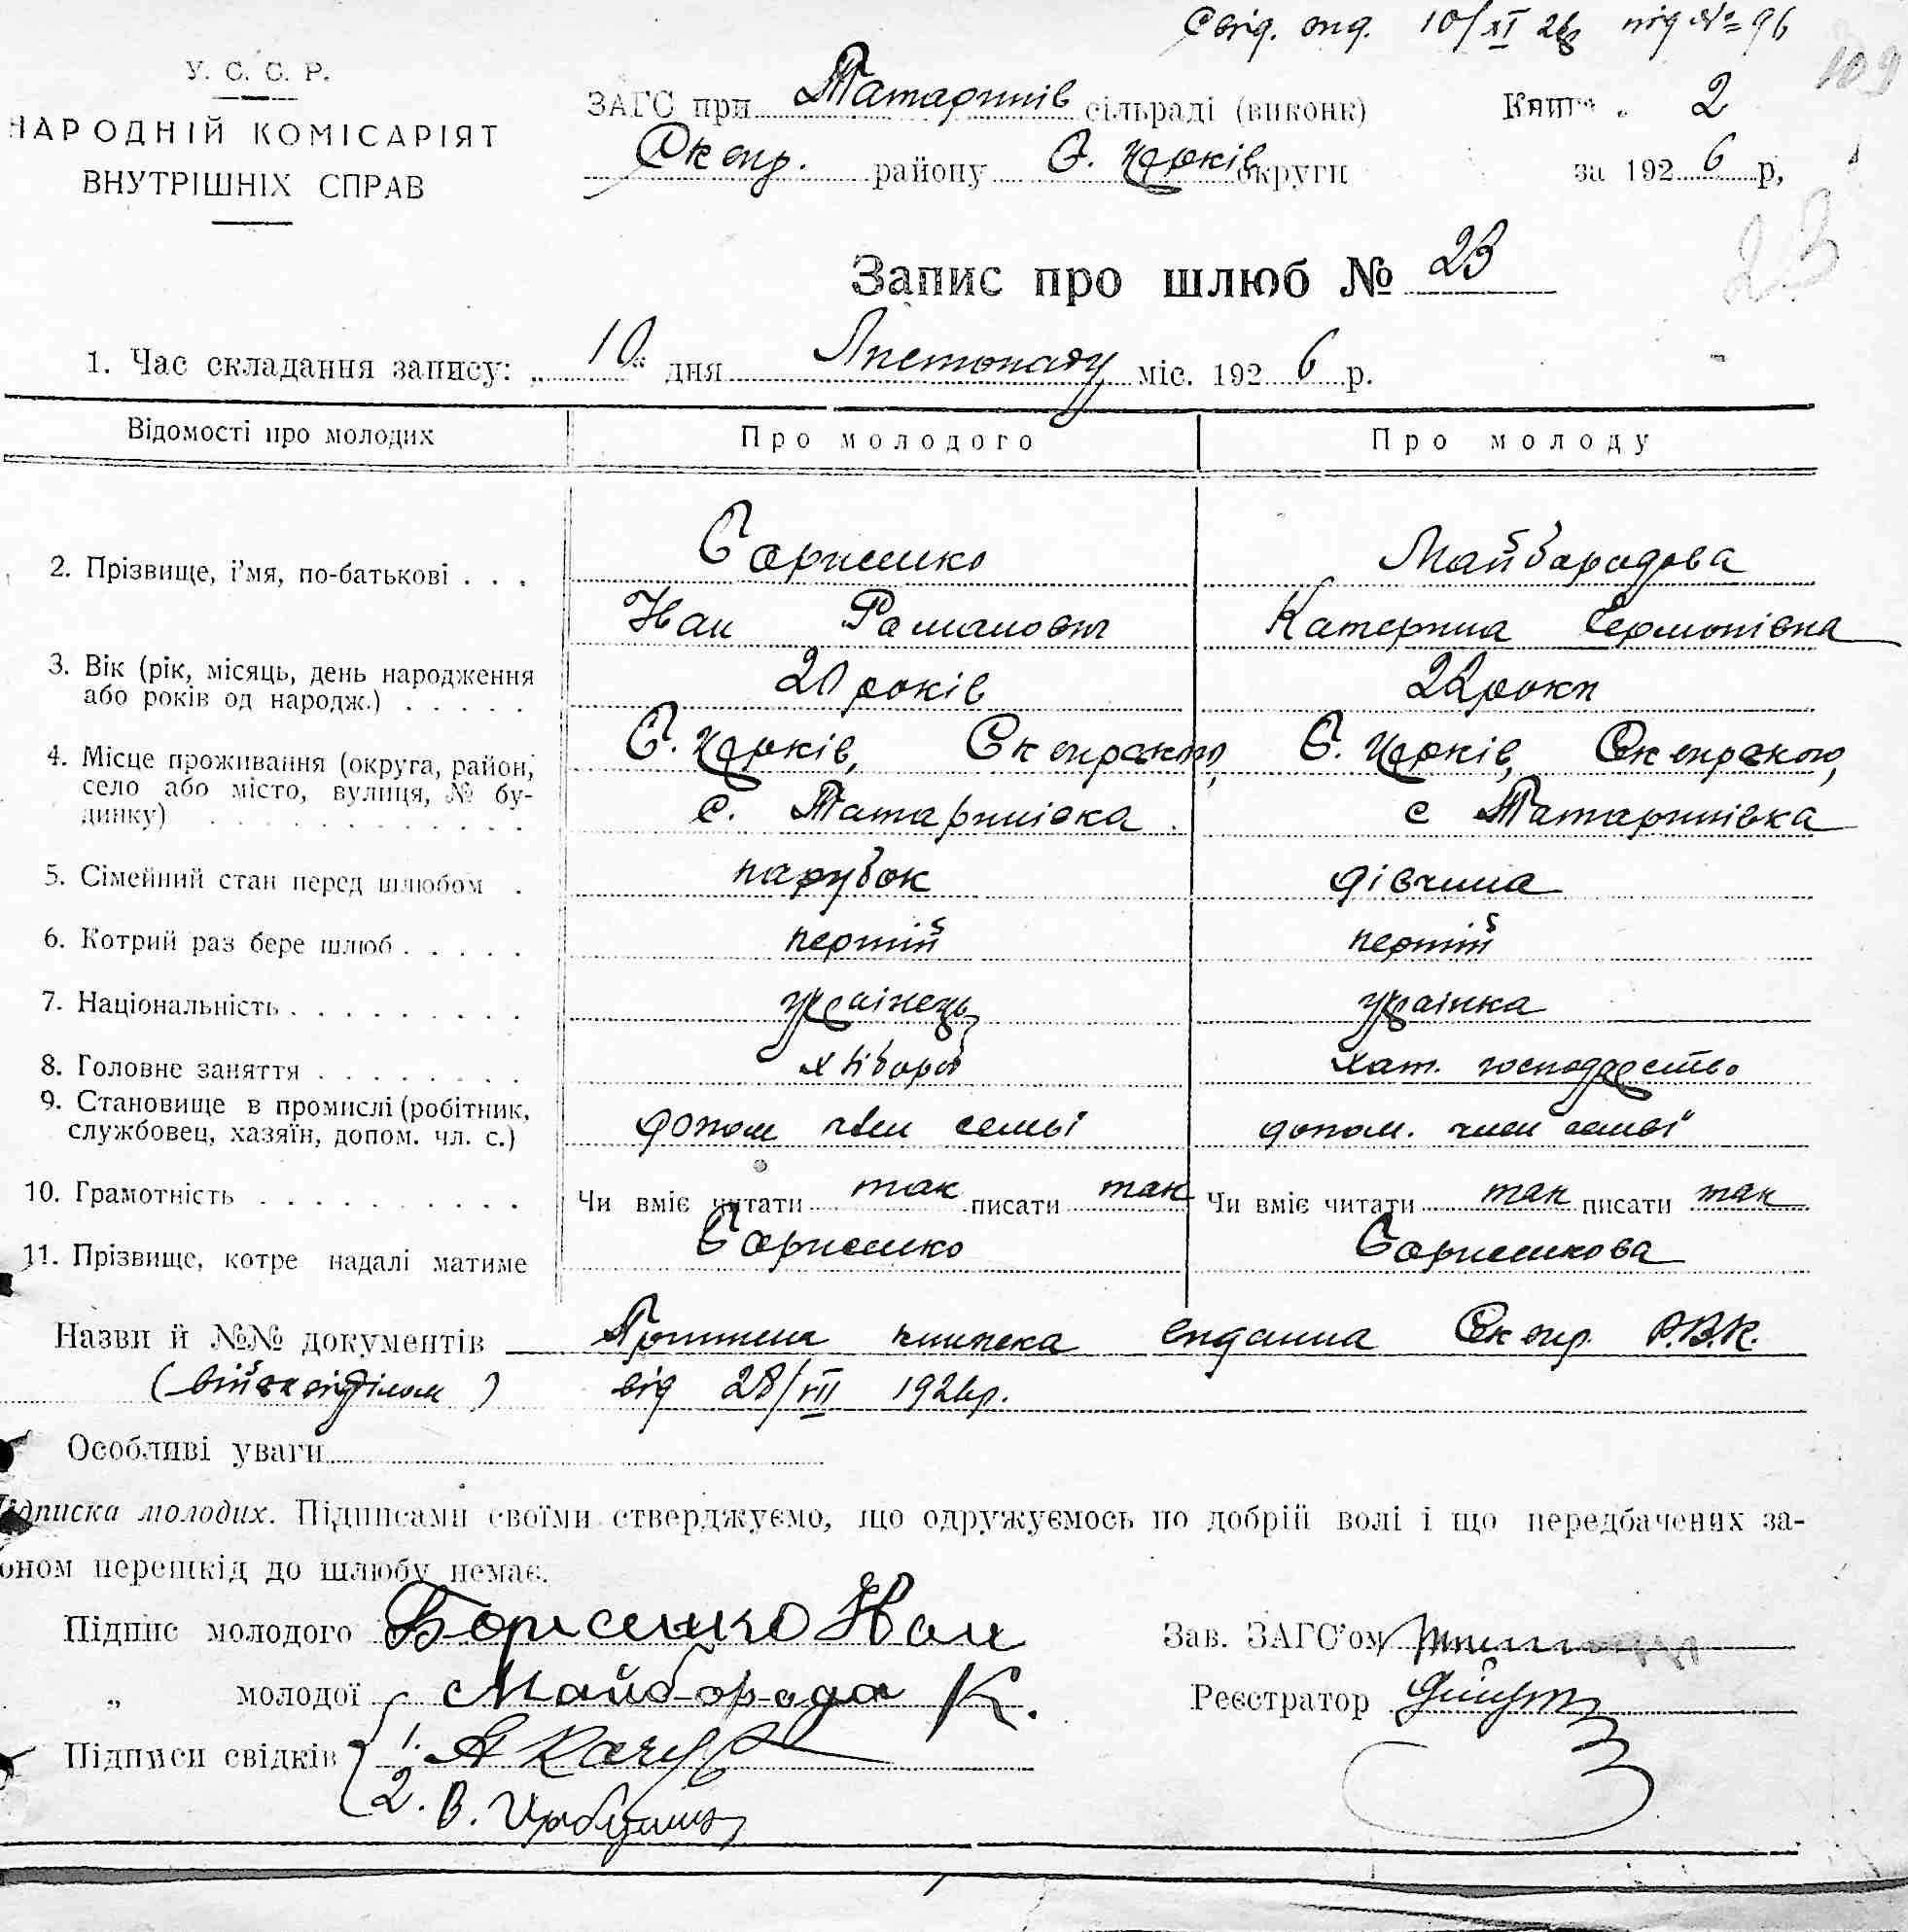 Свід. вид. 10/XI 26 під № 96
109
У. С. С. Р.
НАРОДНІЙ КОМІСАРІЯТ
ВНУТРІШНІХ СПРАВ
ЗАГС при Татаринів сільраді (виконк)
Сквир. району Б. Церків округи
Книга 2
за 1926 р,
23
Запис про шлюб № 23
1. Час складання запису: „10“ дня Листопаду міс. 1926 р.
Відомості про молодих Про молодого Про молоду
2. Прізвище, і'мя, по-батькові . . . Борисенко Майбородова
Іван Романович Катерина
3. Вік (рік, місяць, день народження 20 років 22 роки
або років од народж.) . . . . .
4. Місце проживання (округа, район, Б. Церків, Сквирского, Б. Церків, Сквирского,
село або місто, вулиця, № бу- с. Татаринівка с Татаринівка
динку) . . . . . . . . . . . .
5. Сімейний стан перед шлюбом . парубок дівчина
6. Котрий раз бере шлюб . . . . . перший перший
7. Національність . . . . . . . . . українець українка
8. Головне заняття . . . . . . . . хлібороб хат. господарство
9. Становище в промислі (робітник,
службовец, хазяїн, допом. чл. с.) допом член семьї допом. член семьї
10. Грамотність . . . . . . . . . . Чи вміє читати так писати так Чи вміє читати так писати так
11. Прізвище, котре надалі матиме Борисенко Борисенкова
Назви й №№ документів книжка видана Сквир. Р.В.К.
(військвідділом) від 28/VII 1926р.
Особливі уваги
Підписка молодих. Підписами своїми стверджуємо, що одружуємось по добрій волі і що передбачених за-
оном перешкід до шлюбу немає.
Підпис молодого Борисенко Іван Зав. ЗАГС'ом
„ молодої Майборода К. Реєстратор
Підписи свідків 1. А
2. В.